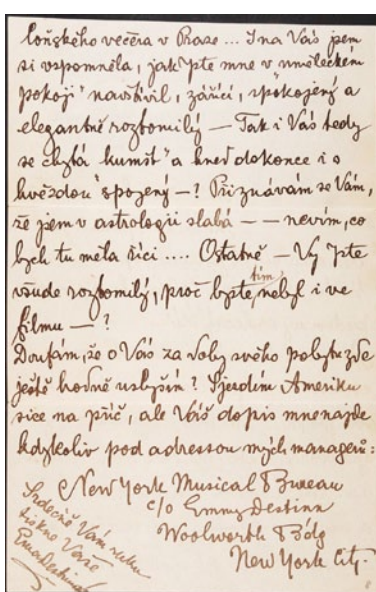 loňského večera v Praze ... I na Vás jsem
si vzpomněla, jak jste mne v uměleckém
pokoji" navštívil, zářící, spokojený a
elegantně roztomilý — Tak i Vás tedy
se chytá kumšt" a hned dokonce i s
hvězdou" spojený —? Přiznávám se Vám,
že jsem v astrologii slabá — — nevím, co
bych tu měla říci .... Ostatně — Vy jste
všude roztomilý, proč byste tím nebyl i ve
filmu — ?
Doufám, že o Vás za doby svého pobytu zde
ještě hodně uslyším? Sjezdím Ameriku
sice na příč, ale Váš dopis mne najde
kdykoliv pod adressou mých managerů:
New York Musical Bureau
c/o Emmy Destinn
Woolworth Bldg
New York City.
Srdečně Vám ruku
tiskne Vaše
Ema Destinnová